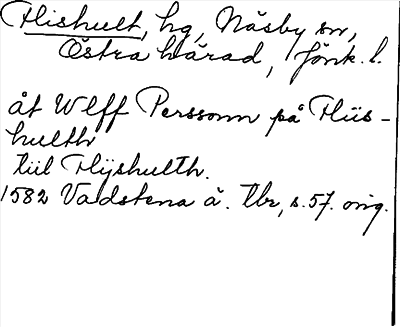 Flishult, hg, Näsby sn,
Östra härad, Jönk. l.
åt Wlff Perssonn på Fliis-
hulth
tiil Flijshullth.
1582 Vadstena ä. tbr, s. 57. orig.